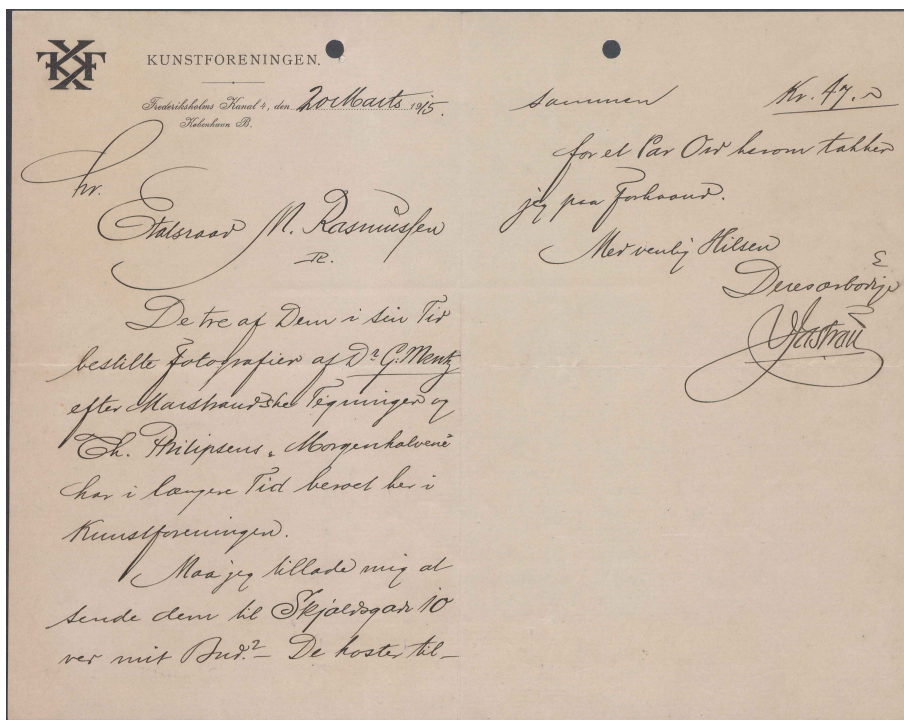 KUNSTFORENINGEN.
Frederiksholms Kanal 4, den 20 Marts 1915.
København B.
Hr.
Etatsraad M. Rasmussen
R.
De tre af Dem i sin Tid
bestilte Fotografier af Dr G. Mentz
efter Marstrandske Tegninger og
Th. Philipsens „Morgenhalvene"
har i længere Tid beroet her i
Kunstforeningen.
Maa jeg tillade mig at
sende dem til Skjoldsgade 10
ved mit Bud? — De koster til-
sammen Kr. 47.
for et Par Ord herom takker
jeg paa Forhaand.
Med venlig Hilsen
Deres ærbødige